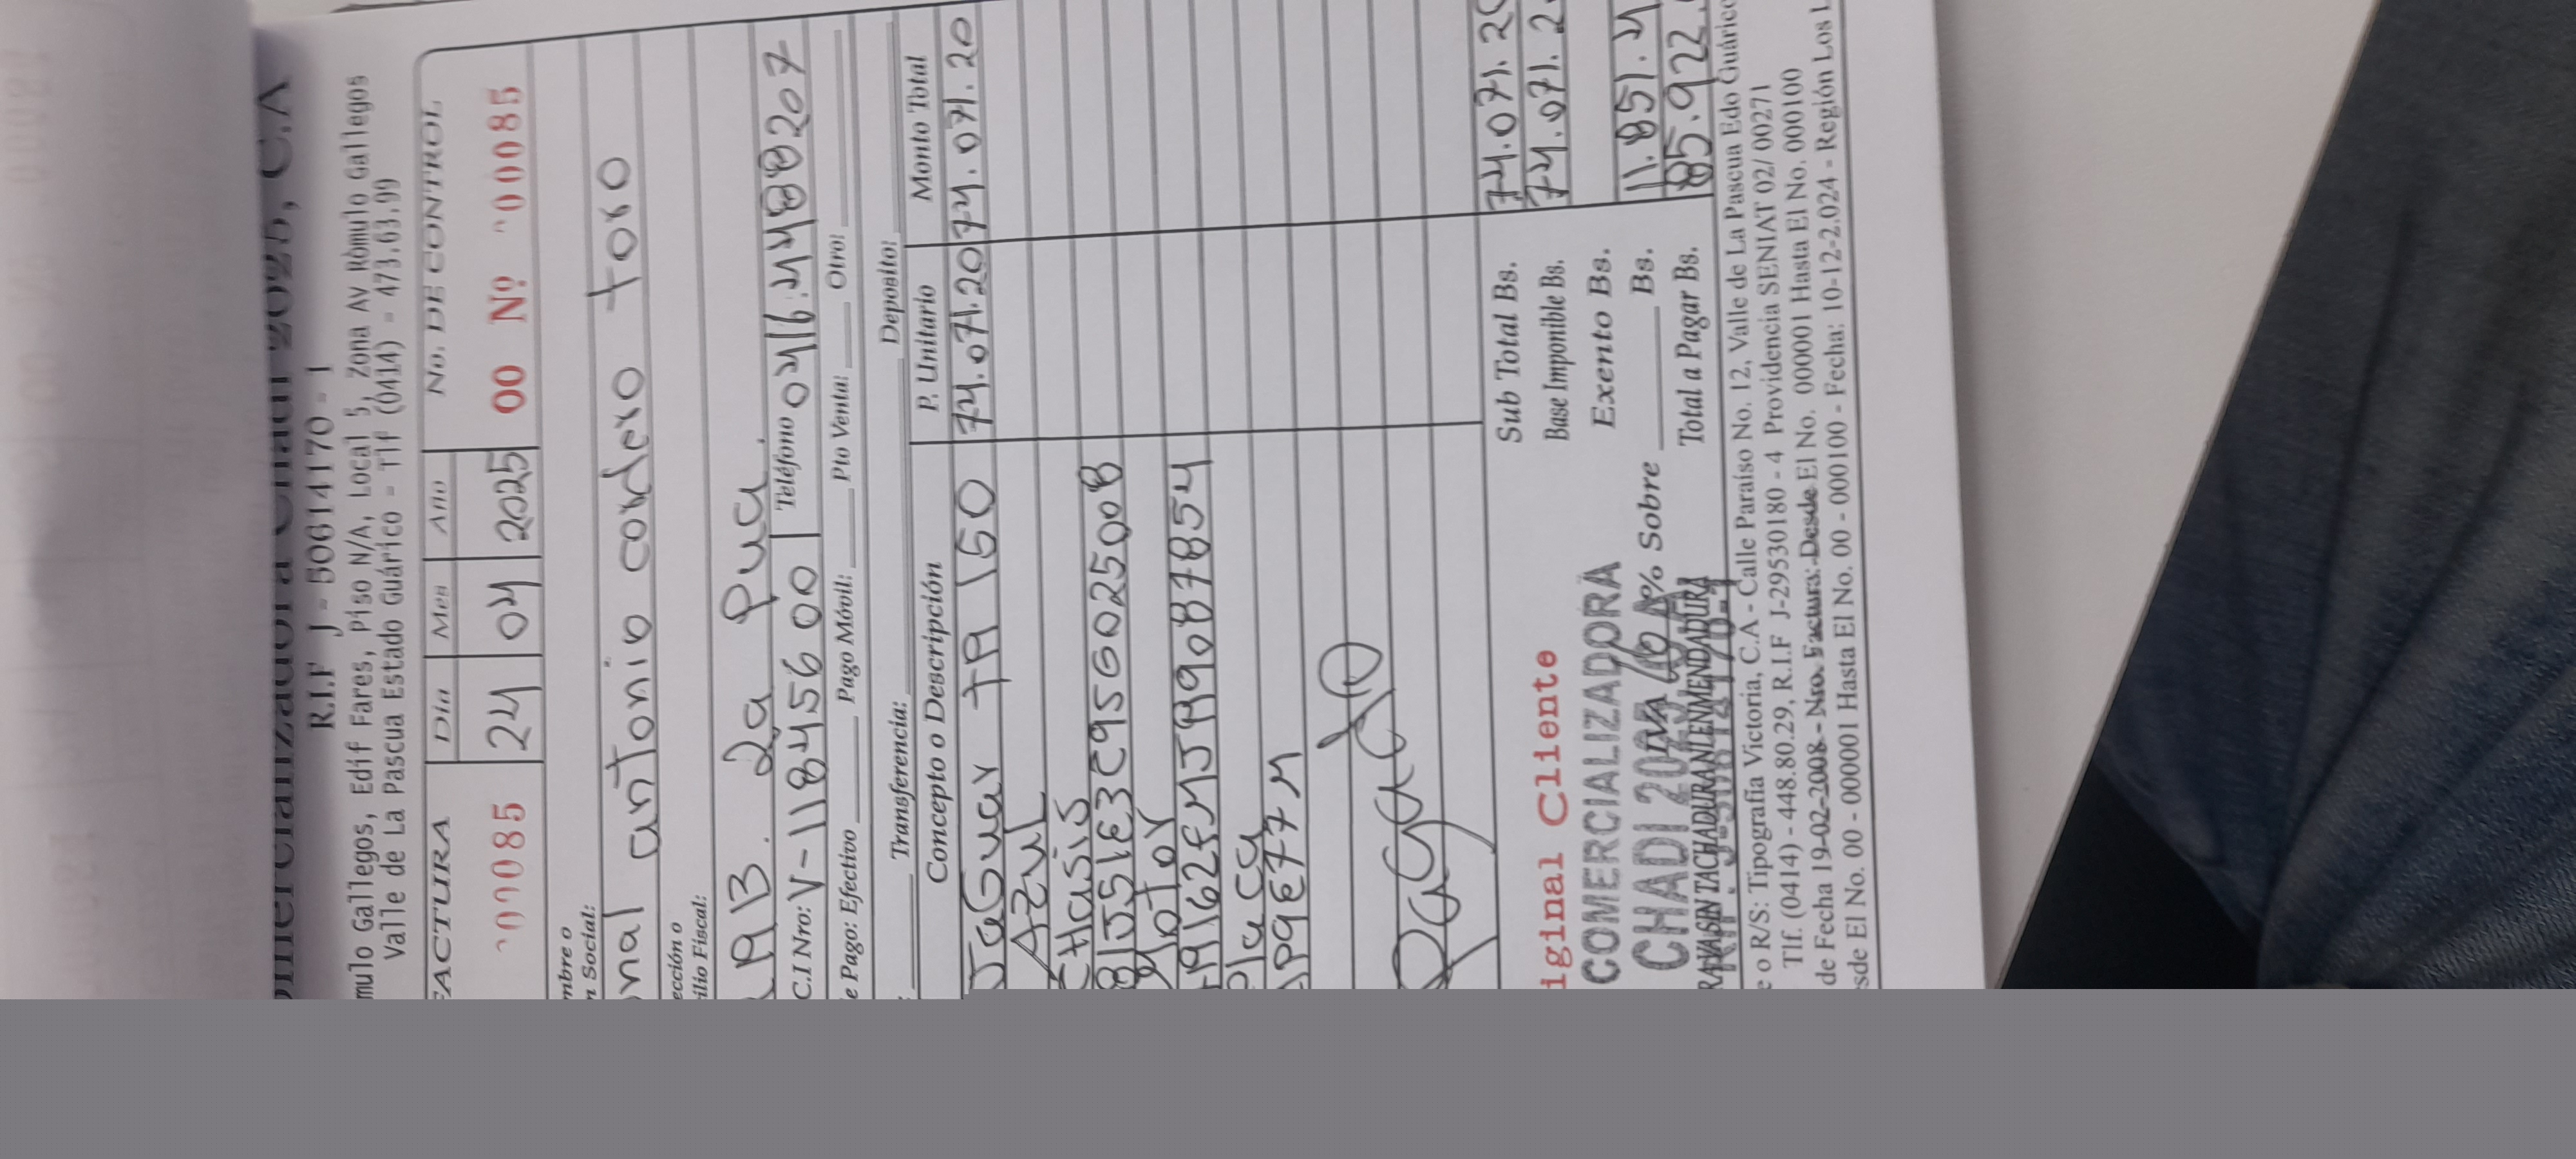 Comercializadora Chadi 2025, C.A
R.I.F J - 50614170 - 1
mulo Gallegos, Edif Fares, Piso N/A, Local 5, Zona Av Rómulo Gallegos
Valle de La Pascua Estado Guárico - Tlf (0414) - 473.63.99
FACTURA Día Mes Año No. DE CONTROL
000085 24 04 2025 00 Nº 000085
mbre o
n Social:
nal antonio cordero toro
ección o
ilio Fiscal:
2a Pua.
C.I Nro: V-11845600 Teléfono 0416.4488207
e Pago: Efectivo Pago Móvil: Pto Venta: Otro:
Transferencia: Deposito:
Concepto o Descripción P. Unitario Monto Total
JaGuar TA 150 74.071.20 74.071.20
AZUL
CHasis
Motor
Placa
PAGado
Sub Total Bs. 74.071.20
Base Imponible Bs. 74.071.2
iginal Cliente
Exento Bs.
COMERCIALIZADORA
CHADI 2025
IVA 16 % Sobre Bs. 11.851.4
Total a Pagar Bs. 85.922.
RA VA SIN TACHADURA NI ENMENDADURA
e o R/S: Tipografía Victoria, C.A - Calle Paraíso No. 12, Valle de La Pascua Edo Guárico
Tlf. (0414) - 448.80.29, R.I.F J-29530180 - 4 Providencia SENIAT 02/ 00271
de Fecha 19-02-2008 - Nro. Factura: Desde El No. 000001 Hasta El No. 000100
sde El No. 00 - 000001 Hasta El No. 00 - 000100 - Fecha: 10-12-2.024 - Región Los L